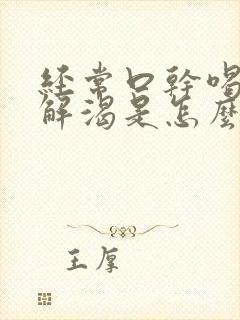 經常口幹喝
解渴是怎麼
王厚